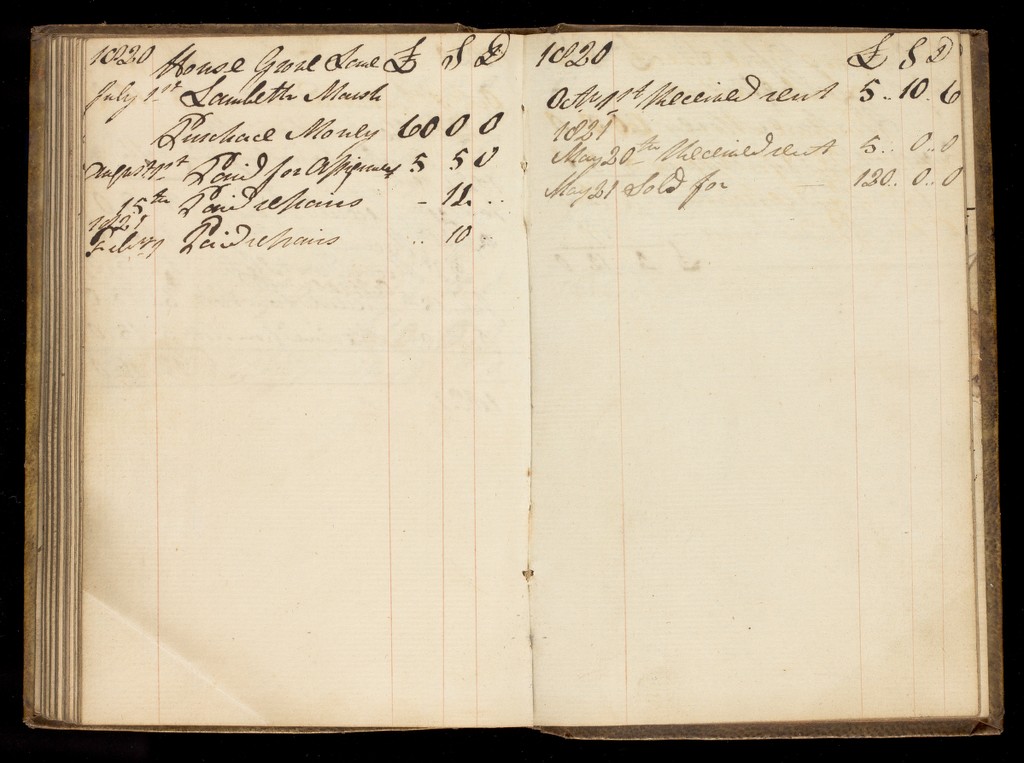 1820 House Grove Lane £ S D
July 1st Lambeth Marsh
Purchace Money 60 0 0
August 1st Paid for Assignment 5 5 0
15th Paid repairs - 12 ..
1821
Feby 9 Paid repairs .. 10
1820 £ S D
Octr 1st Received rent 5 .. 10 .. 6
1821
May 20th Received rent 5 .. 0 .. 0
May 21 Sold for 120 .. 0 .. 0